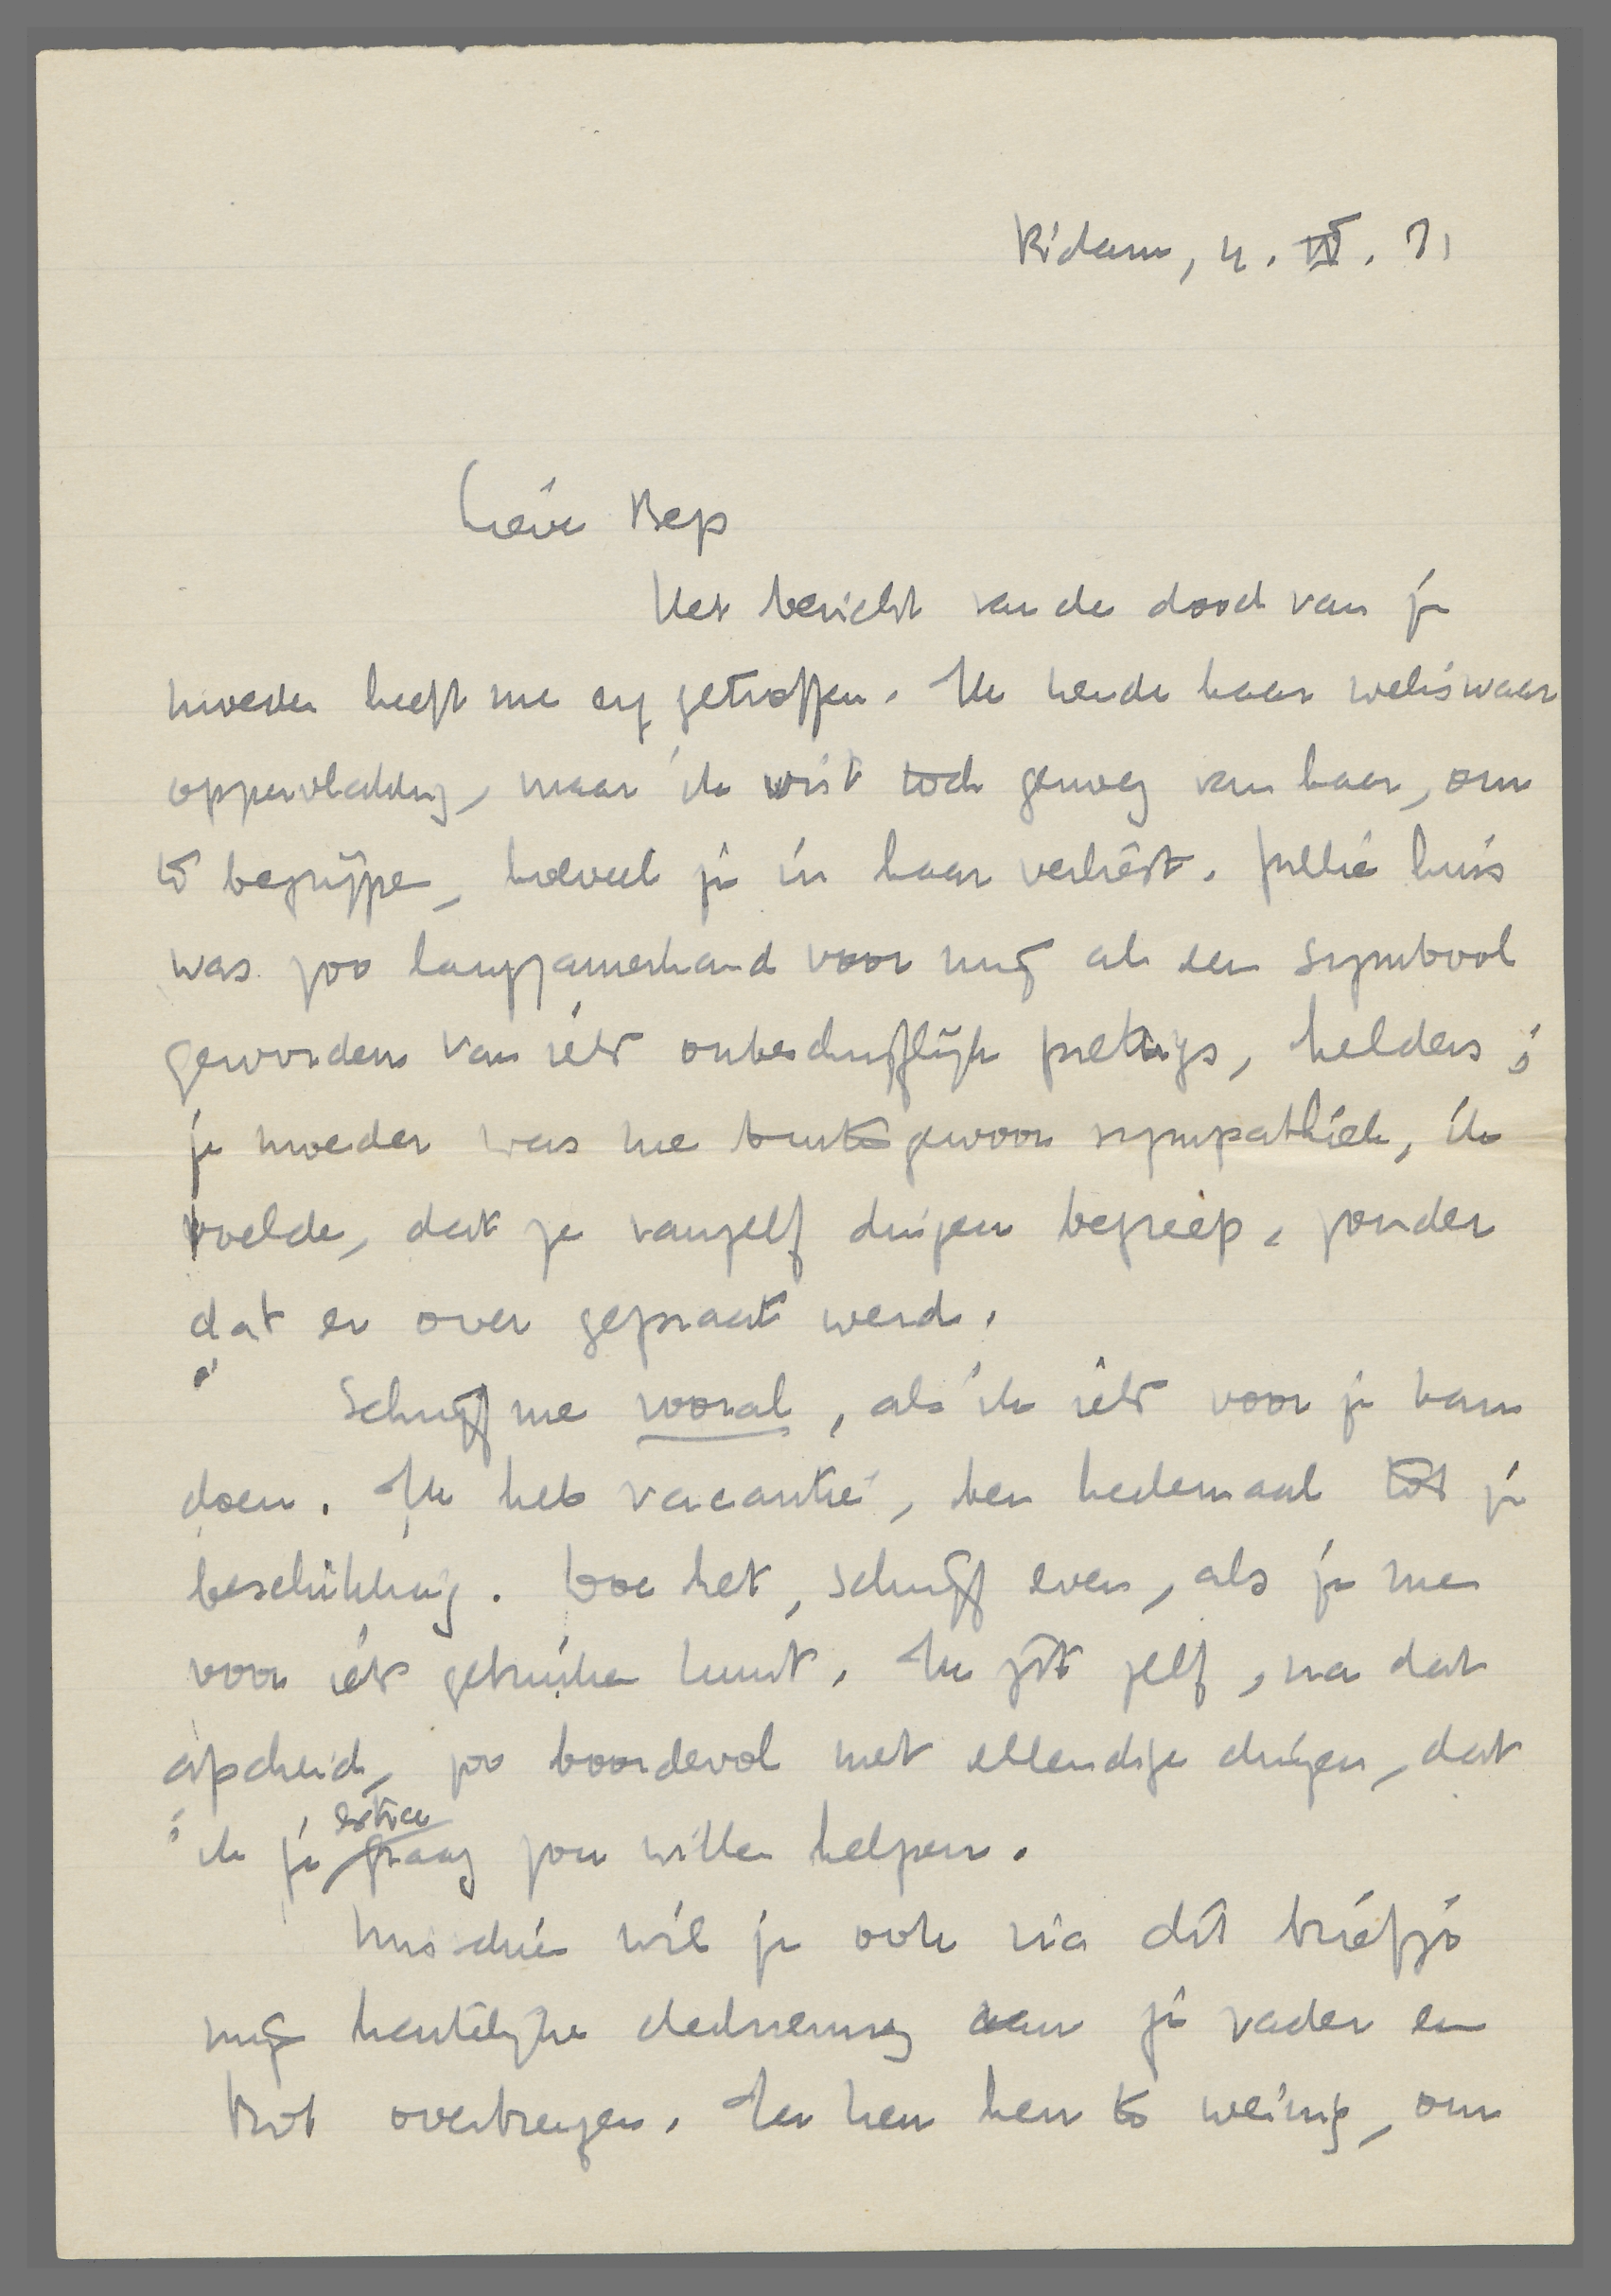 R'dam, 4. IV. 31
Lieve Bep
Het bericht van de dood van je
moeder heeft me erg getroffen. Ik kende haar weliswaar
oppervlakkig, maar ik wist toch genoeg van haar, om
te begrijpen, hoeveel je in haar verliest. Jullie huis
was zoo langzamerhand voor mij als een symbool
geworden van iets onbeschrijflijk prettigs, helders;
je moeder was me buitengewoon sympathiek, ik
voelde, dat ze vanzelf dingen begreep, zonder
dat er over gepraat werd.
Schrijf me vooral, als ik iets voor je kan
doen. Ik heb vacantie, ben heelemaal tot je
beschikking. Doe het, schrijf even, als je me
voor iets gebruiken kunt. Ik zit zelf, na dat
afscheid, zoo boordevol met ellendige dingen, dat
extra
ik je graag zou willen helpen.
Misschien wil je ook via dit briefje
mijn hartelijke deelneming aan je vader en
overbrengen. Ik ken hen te weinig, om